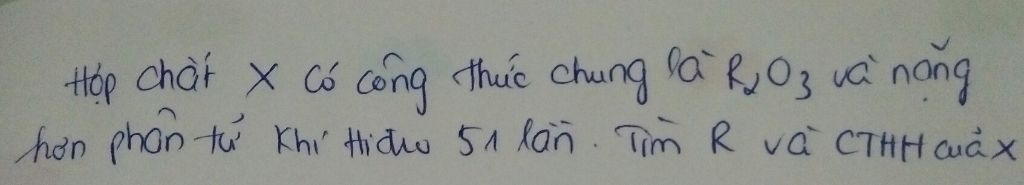 Hợp chất X có công thức chung là R₂O₃ và nặng
hơn phân tử khí Hiđro 51 lần. Tìm R và CTHH của X